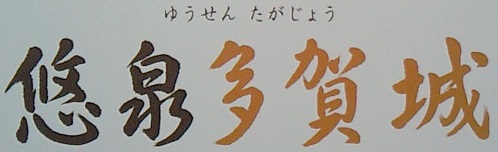 ゆうせん たがじょう
悠泉多賀城